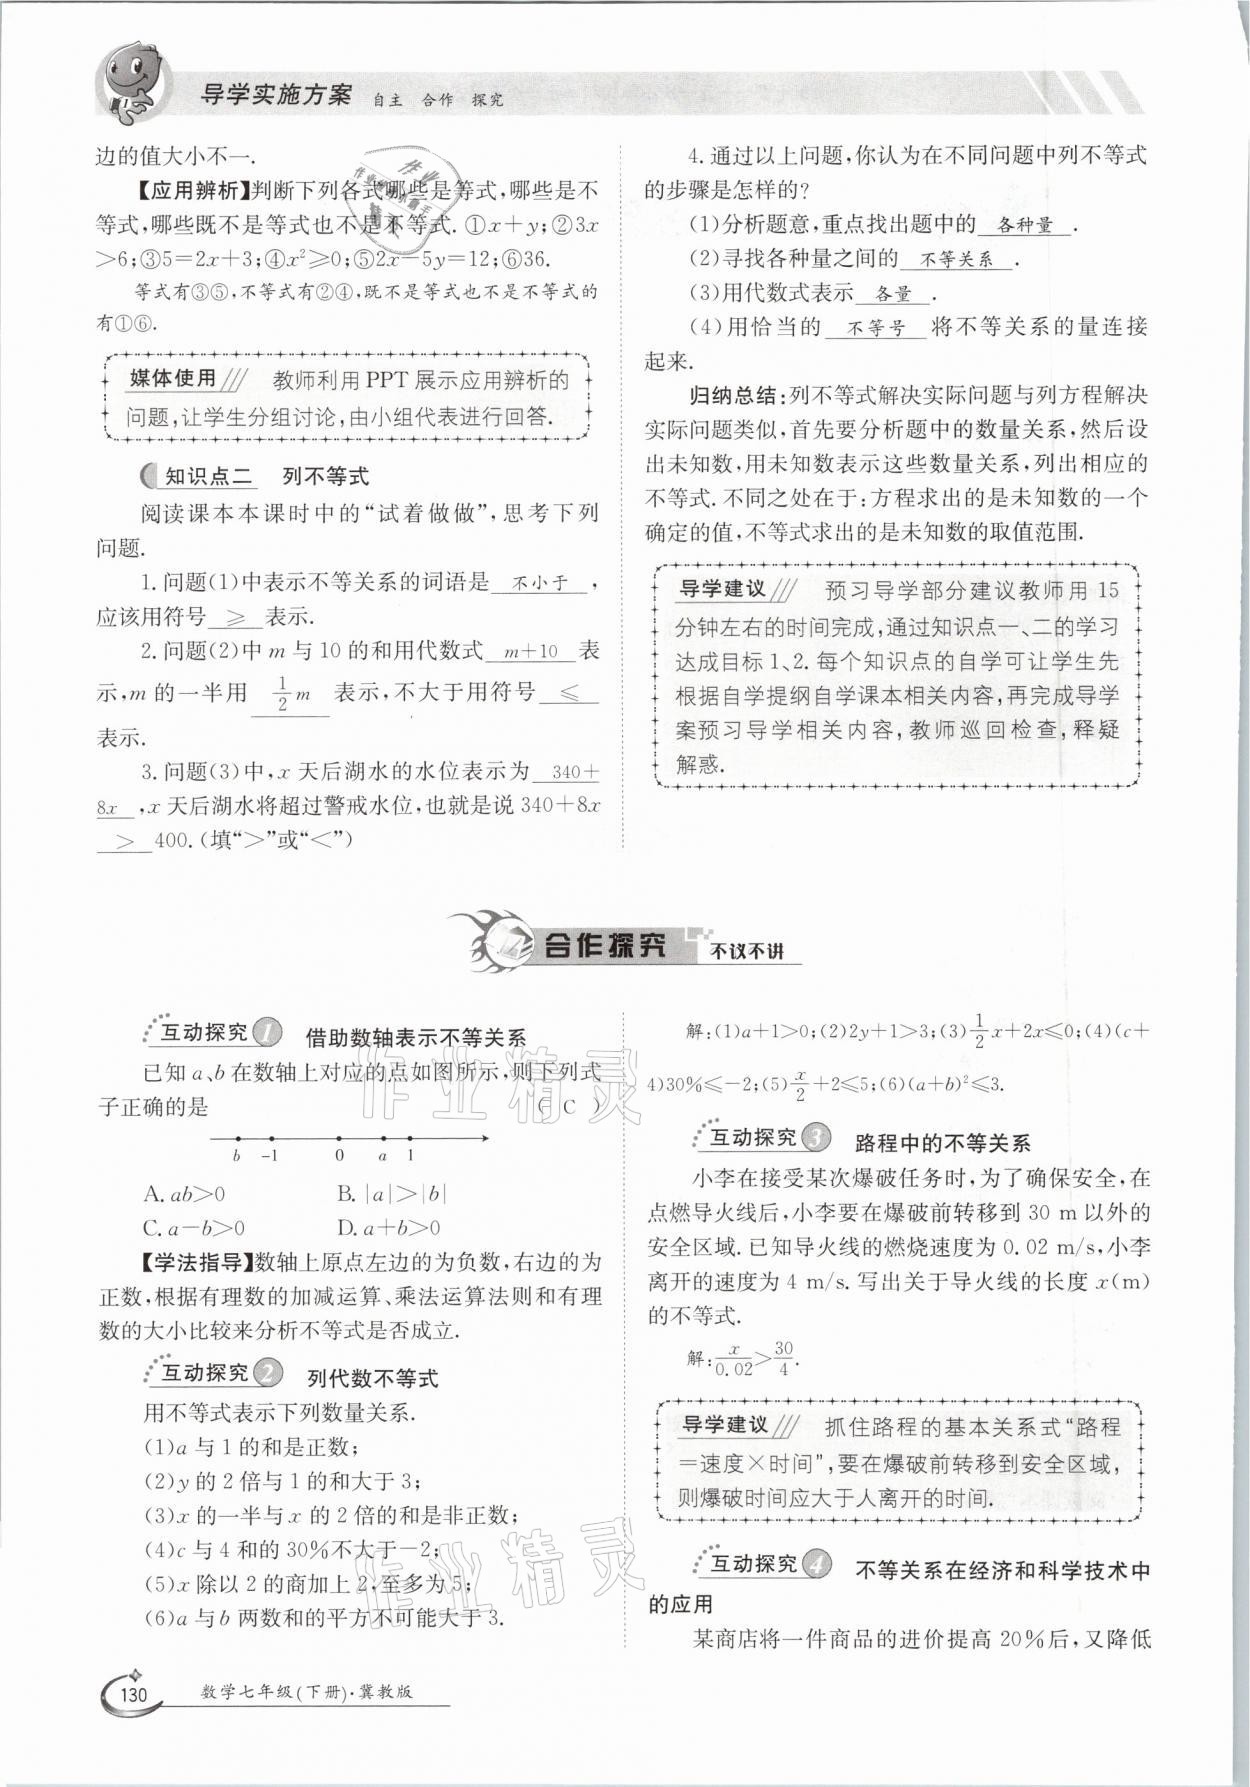 导学实施方案 自主 合作 探究
边的值大小不一.
【应用辨析】判断下列各式哪些是等式,哪些是不
等式,哪些既不是等式也不是不等式.①x+y;②3x
>6;③5=2x+3;④x²≥0;⑤2x-5y=12;⑥36.
等式有③⑤,不等式有②④,既不是等式也不是不等式的
有①⑥.
媒体使用 教师利用 PPT 展示应用辨析的
问题,让学生分组讨论,由小组代表进行回答.
知识点二 列不等式
阅读课本本课时中的“试着做做”,思考下列
问题.
1.问题(1)中表示不等关系的词语是 不小于 ,
应该用符号 ≥ 表示.
2.问题(2)中 m 与 10 的和用代数式 m+10 表
示,m 的一半用 1/2 m 表示,不大于用符号 ≤
表示.
3.问题(3)中,x 天后湖水的水位表示为 340+
8x ,x 天后湖水将超过警戒水位,也就是说 340+8x
> 400.(填“>”或“<”)
4.通过以上问题,你认为在不同问题中列不等式
的步骤是怎样的?
(1)分析题意,重点找出题中的 各种量 .
(2)寻找各种量之间的 不等关系 .
(3)用代数式表示 各量 .
(4)用恰当的 不等号 将不等关系的量连接
起来.
归纳总结:列不等式解决实际问题与列方程解决
实际问题类似,首先要分析题中的数量关系,然后设
出未知数,用未知数表示这些数量关系,列出相应的
不等式.不同之处在于:方程求出的是未知数的一个
确定的值,不等式求出的是未知数的取值范围.
导学建议 预习导学部分建议教师用 15
分钟左右的时间完成,通过知识点一、二的学习
达成目标 1、2.每个知识点的自学可让学生先
根据自学提纲自学课本相关内容,再完成导学
案预习导学相关内容,教师巡回检查,释疑
解惑.
合作探究 不议不讲
互动探究 1 借助数轴表示不等关系
已知 a、b 在数轴上对应的点如图所示,则下列式
子正确的是 ( C )
b -1 0 a 1
A. ab>0 B. |a|>|b|
C. a-b>0 D. a+b>0
【学法指导】数轴上原点左边的为负数,右边的为
正数,根据有理数的加减运算、乘法运算法则和有理
数的大小比较来分析不等式是否成立.
互动探究 2 列代数不等式
用不等式表示下列数量关系.
(1)a 与 1 的和是正数;
(2)y 的 2 倍与 1 的和大于 3;
(3)x 的一半与 x 的 2 倍的和是非正数;
(4)c 与 4 和的 30%不大于-2;
(5)x 除以 2 的商加上 2,至多为 5;
(6)a 与 b 两数和的平方不可能大于 3.
解:(1)a+1>0;(2)2y+1>3;(3)1/2 x+2x≤0;(4)(c+
4)30%≤-2;(5)x/2+2≤5;(6)(a+b)²≤3.
互动探究 3 路程中的不等关系
小李在接受某次爆破任务时,为了确保安全,在
点燃导火线后,小李要在爆破前转移到 30 m 以外的
安全区域.已知导火线的燃烧速度为 0.02 m/s,小李
离开的速度为 4 m/s.写出关于导火线的长度 x(m)
的不等式.
解:x/0.02>30/4.
导学建议 抓住路程的基本关系式“路程
=速度×时间”,要在爆破前转移到安全区域,
则爆破时间应大于人离开的时间.
互动探究 4 不等关系在经济和科学技术中
的应用
某商店将一件商品的进价提高 20%后,又降低
130 数学七年级(下册)·冀教版
作业精灵
作业精灵